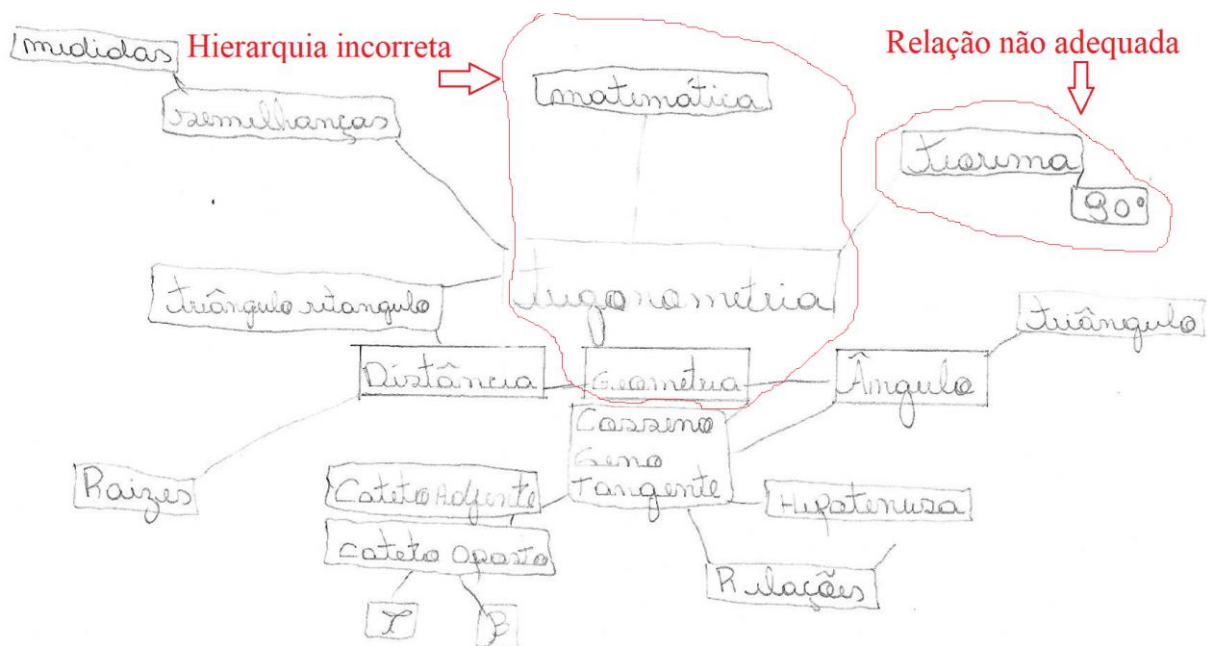 Hierarquia incorreta
Relação não adequada
medidas
matemática
semelhanças
teorema
90°
trigonometria
triângulo retangulo
triângulo
Distância
Geometria
Ângulo
Cosseno
Seno
Tangente
Raizes
Cateto Adjente
Hipotenusa
Cateto Oposto
Relações